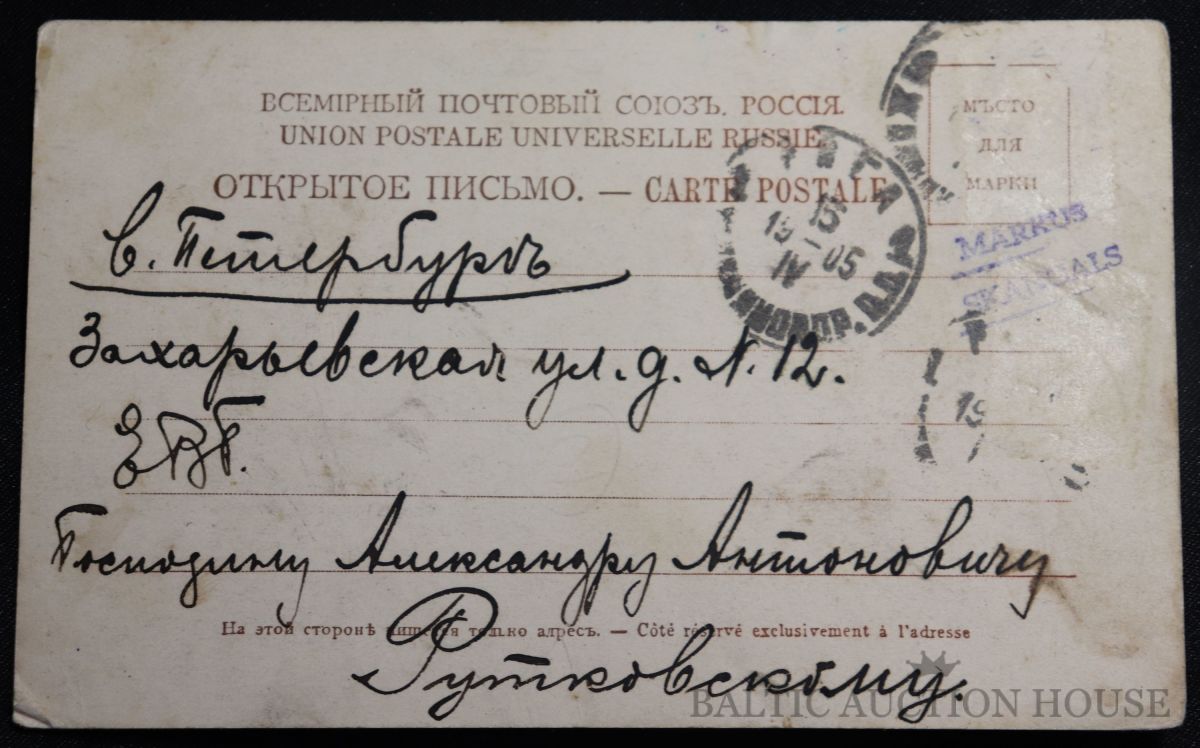 ВСЕМІРНЫЙ ПОЧТОВЫЙ СОЮЗЪ. РОССІЯ.
UNION POSTALE UNIVERSELLE RUSSIE.
ОТКРЫТОЕ ПИСЬМО. — CARTE POSTALE
МѢСТО
ДЛЯ
МАРКИ
РИГА
15
19 05
IV
MARKUS
SKANGALS
С. Петербургъ
Захарьевская ул. д. N. 12.
ЕВБ.
Господину Александру Антоновичу
На этой сторонѣ пишется только адресъ. — Côté réservé exclusivement à l'adresse
Рутковскому.
19
BALTIC AUCTION HOUSE